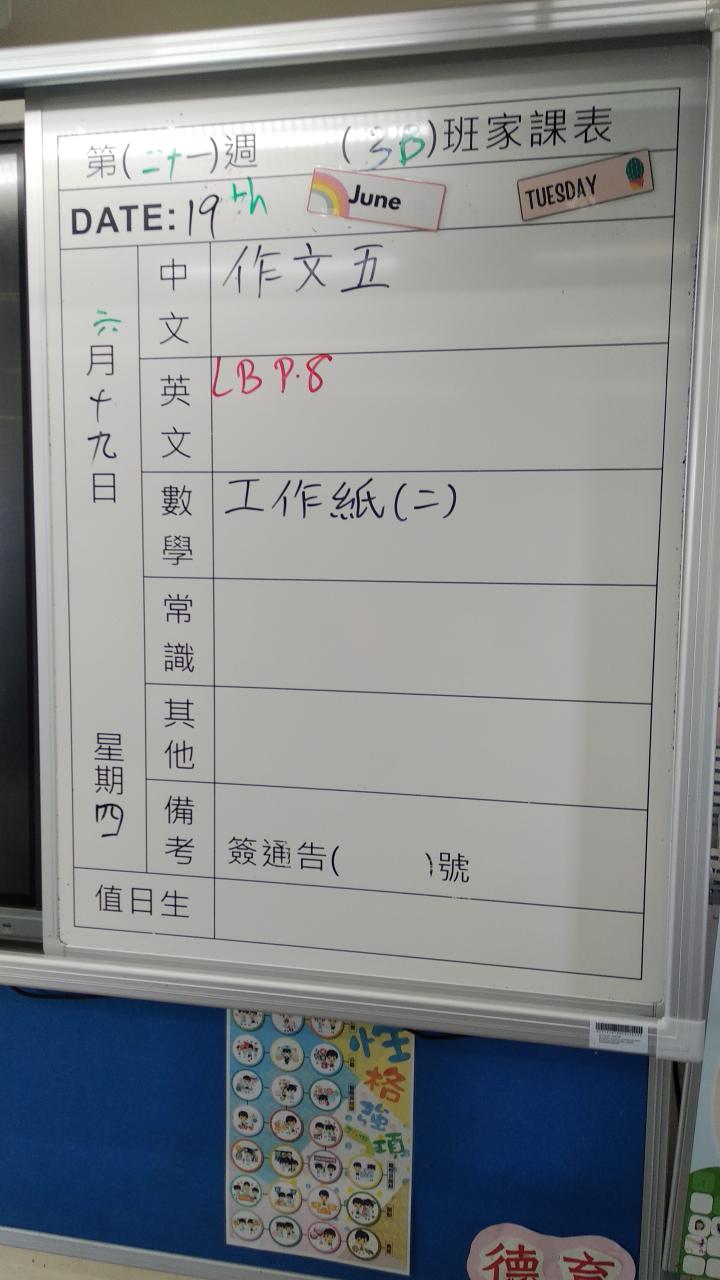 第(二十一)週 (3B)班家課表
DATE: 19th June TUESDAY
六月十九日
星期四
中文 作文五
英文 LB P.8
數學 工作紙(二)
常識
其他
備考 簽通告( )號
值日生
性格強項
德育